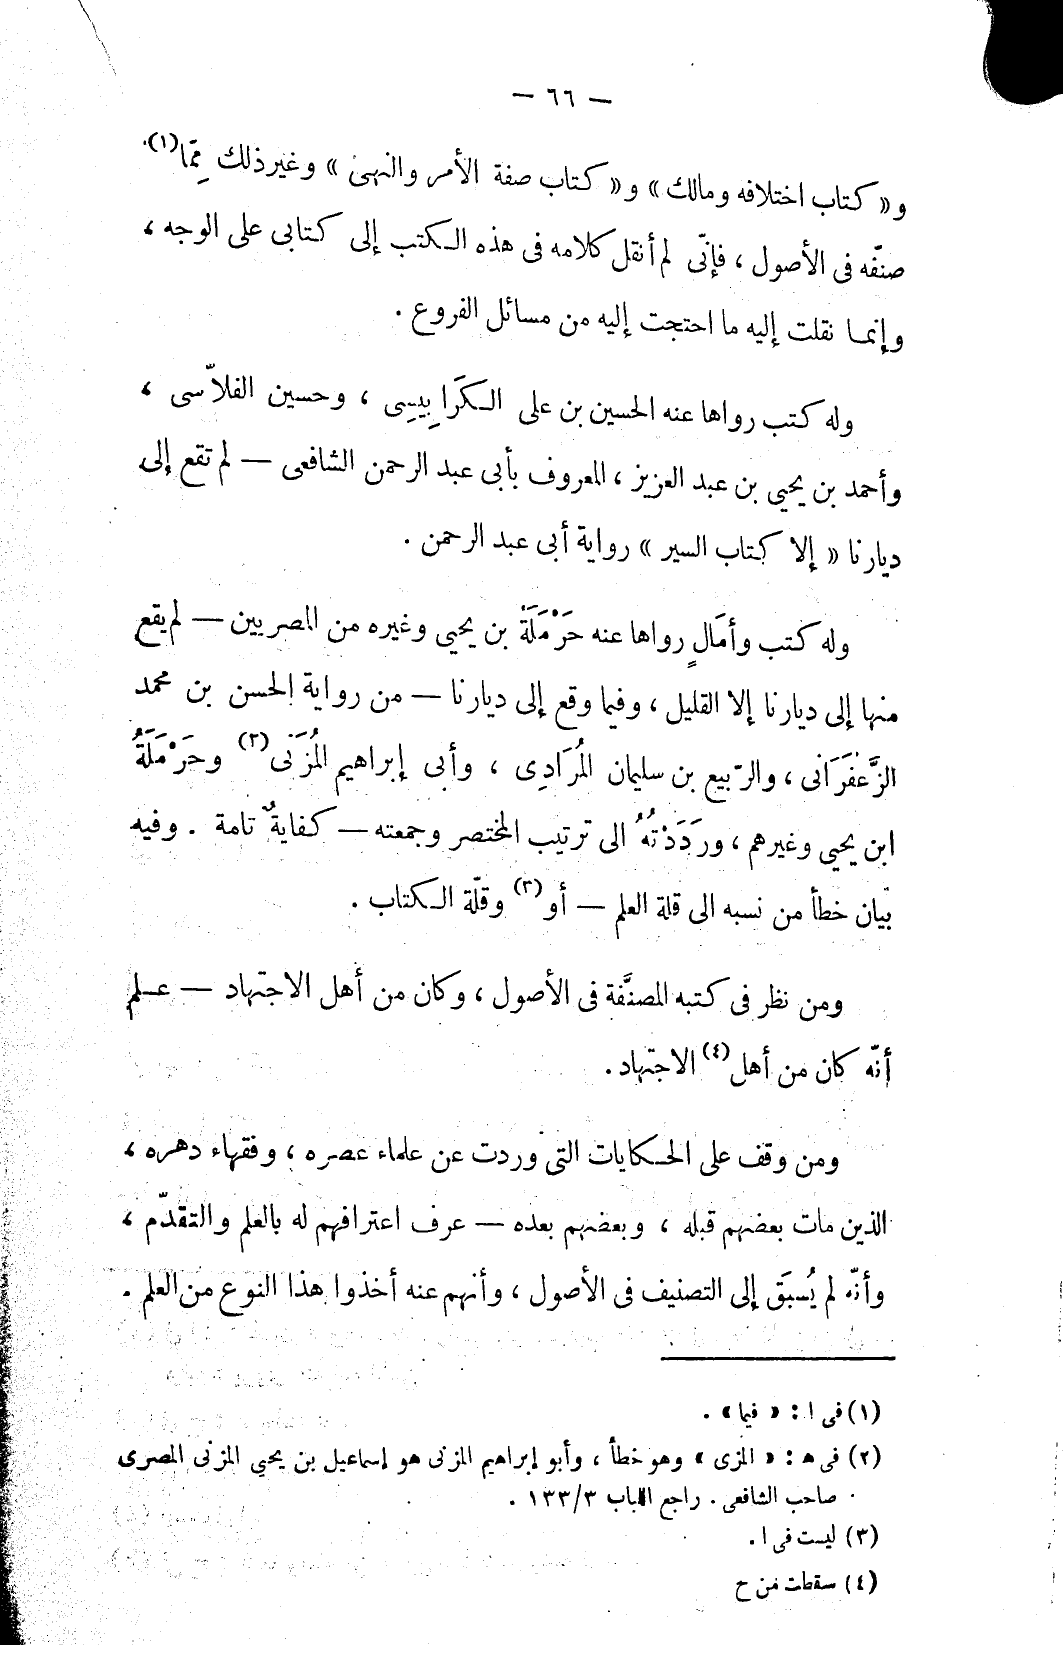 — ٦٦ —
و « كتاب اختلافه ومالك » و « كتاب صفة الأمر والنهى » وغير ذلك مِمّا(١)
صنّفه فى الأصول ، فإنّى لم أنقل كلامه فى هذه الكتب إلى كتابى على الوجه ،
وإنما نقلت إليه ما احتجت إليه من مسائل الفروع .
وله كتب رواها عنه الحسين بن على الكَرَابِيسِى ، وحسين الفلاّسى ،
وأحمد بن يحيى بن عبد العزيز ، المعروف بأبى عبد الرحمن الشافعى — لم تقع إلى
ديارنا « إلا كتاب السير » رواية أبى عبد الرحمن .
وله كتب وأمَالٍ رواها عنه حَرْمَلَةُ بن يحيى وغيره من المصريين — لم يقع
منها إلى ديارنا إلا القليل ، وفيما وقع إلى ديارنا — من رواية الحسن بن محمد
الزَّعفَرَانى ، والرّبيع بن سليمان المُرَادِى ، وأبى إبراهيم المُزَنى(٢) وحَرْمَلَةُ
ابن يحيى وغيرهم ، ورَدَدْتُهُ الى ترتيب المختصر وجمعته — كفايةٌ تامة . وفيه
بيان خطأ من نسبه الى قلة العلم — أو(٣) وقلّة الكتاب .
ومن نظر فى كتبه المصنَّفة فى الأصول ، وكان من أهل الاجتهاد — علم
أنّه كان من أهل(٤) الاجتهاد .
ومن وقف على الحكايات التى وردت عن علماء عصره ، وفقهاء دهره ،
الذين مات بعضهم قبله ، وبعضهم بعده — عرف اعترافهم له بالعلم والتقدّم ،
وأنّه لم يُسبَق إلى التصنيف فى الأصول ، وأنهم عنه أخذوا هذا النوع من العلم .
(١) فى ا : « فيما » .
(٢) فى ه : « المزى » وهو خطأ ، وأبو إبراهيم المزنى هو إسماعيل بن يحيى المزنى المصرى
صاحب الشافعى . راجع اللباب ١٣٣/٣ .
(٣) ليست فى ا .
(٤) سقطت من ح